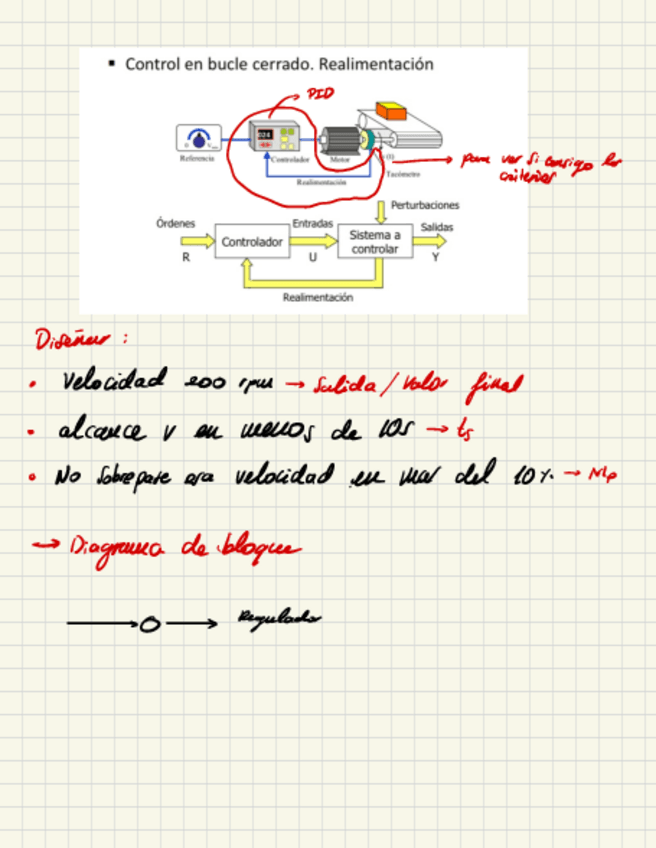 ▪ Control en bucle cerrado. Realimentación
PID
Referencia
Controlador
Motor
Tacómetro
Realimentación
para ver si consigo los
criterios
Perturbaciones
Órdenes
Entradas
Salidas
Controlador
Sistema a
controlar
R
U
Y
Realimentación
Diseñar :
• Velocidad 200 rpm → Salida / Valor final
• alcance v en menos de 10s → ts
• No sobrepase esa velocidad en mas del 10 %. → Mp
→ Diagrama de bloque
Regulador